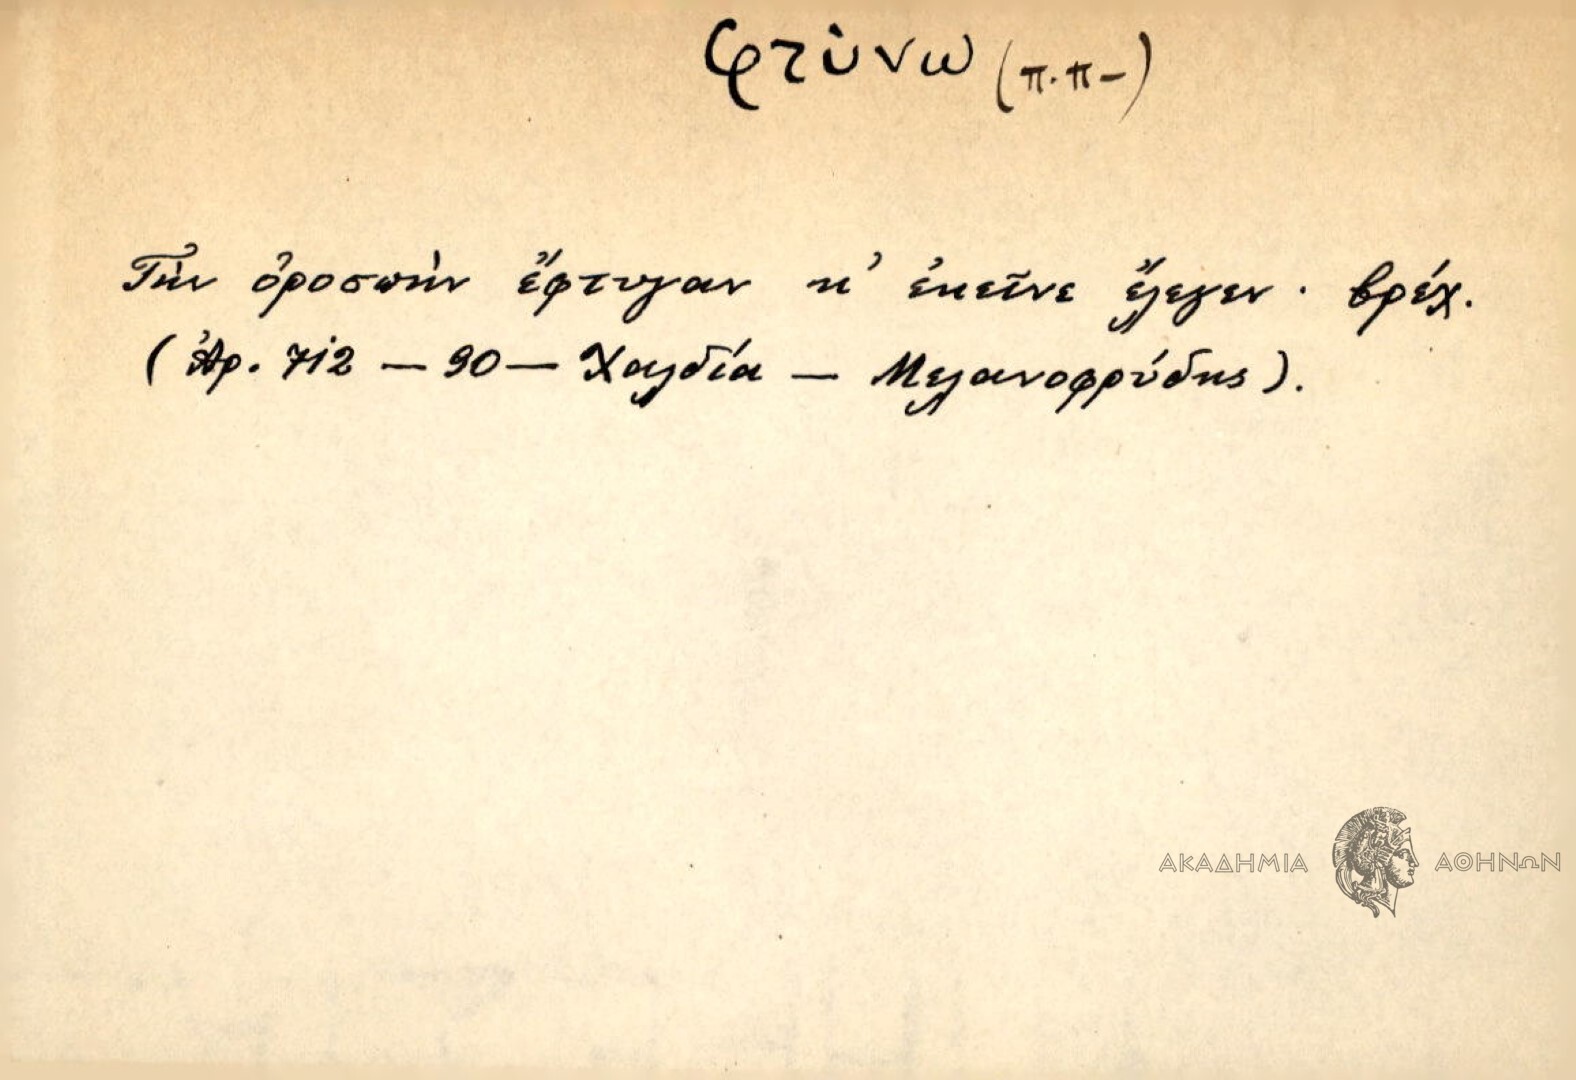 φτύνω (π.π–)
Τὴν ὀροσπὴν ἔφτυγαν κ' ἐκεῖνε ἔλεγεν · βρέχ.
(Ἀρ. 712 — 90 — Χαλδία — Μελανοφρύδης).
ΑΚΑΔΗΜΙΑ ΑΘΗΝΩΝ